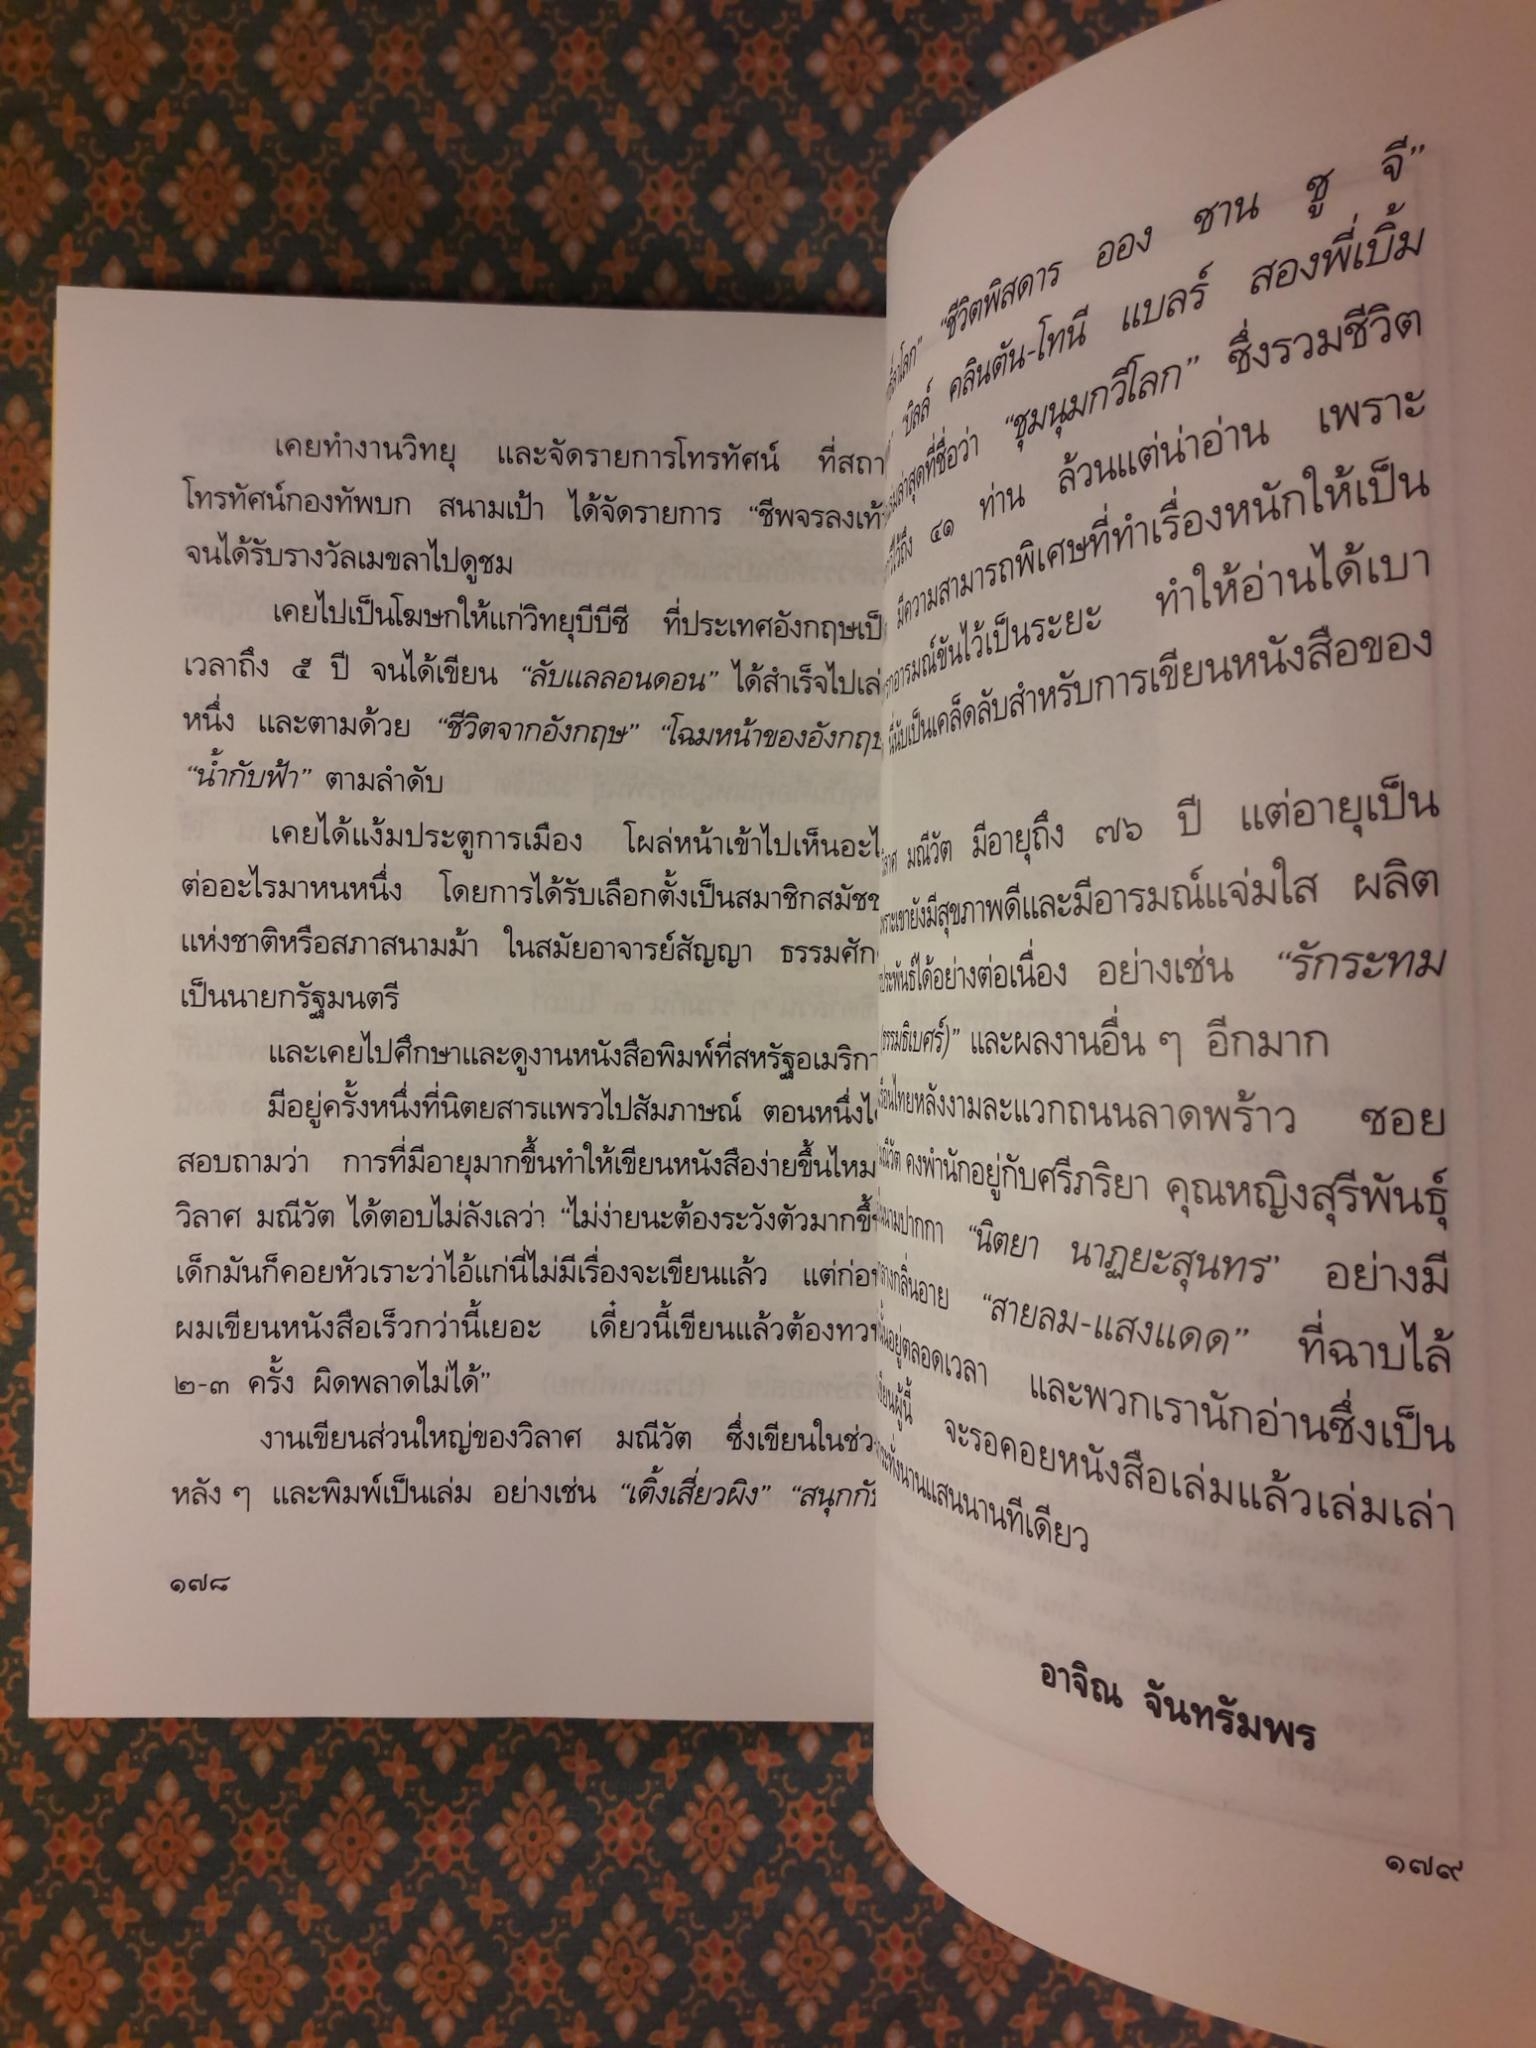 เคยทำงานวิทยุ และจัดรายการโทรทัศน์ ที่สถา
โทรทัศน์กองทัพบก สนามเป้า ได้จัดรายการ “ชีพจรลงเท้
จนได้รับรางวัลเมขลาไปดูชม
เคยไปเป็นโฆษกให้แก่วิทยุบีบีซี ที่ประเทศอังกฤษเป็
เวลาถึง ๕ ปี จนได้เขียน “ลับแลลอนดอน” ได้สำเร็จไปเล่
หนึ่ง และตามด้วย “ชีวิตจากอังกฤษ” “โฉมหน้าของอังกฤษ
“น้ำกับฟ้า” ตามลำดับ
เคยได้แง้มประตูการเมือง โผล่หน้าเข้าไปเห็นอะไ
ต่ออะไรมาหนหนึ่ง โดยการได้รับเลือกตั้งเป็นสมาชิกสมัชช
แห่งชาติหรือสภาสนามม้า ในสมัยอาจารย์สัญญา ธรรมศัก
เป็นนายกรัฐมนตรี
และเคยไปศึกษาและดูงานหนังสือพิมพ์ที่สหรัฐอเมริกา
มีอยู่ครั้งหนึ่งที่นิตยสารแพรวไปสัมภาษณ์ ตอนหนึ่งไ
สอบถามว่า การที่มีอายุมากขึ้นทำให้เขียนหนังสือง่ายขึ้นไหม
วิลาศ มณีวัต ได้ตอบไม่ลังเลว่า “ไม่ง่ายนะต้องระวังตัวมากขึ้
เด็กมันก็คอยหัวเราะว่าไอ้แก่นี่ไม่มีเรื่องจะเขียนแล้ว แต่ก่อ
ผมเขียนหนังสือเร็วกว่านี้เยอะ เดี๋ยวนี้เขียนแล้วต้องทวน
๒-๓ ครั้ง ผิดพลาดไม่ได้”
งานเขียนส่วนใหญ่ของวิลาศ มณีวัต ซึ่งเขียนในช่ว
หลัง ๆ และพิมพ์เป็นเล่ม อย่างเช่น “เติ้งเสี่ยวผิง” “สนุกกั
๑๗๘
“ชีวิตพิสดาร ออง ซาน ซู จี”
“บิลล์ คลินตัน-โทนี แบลร์ สองพี่เบิ้ม
ล่าสุดที่ชื่อว่า “ชุมนุมกวีโลก” ซึ่งรวมชีวิต
ไว้ถึง ๔๑ ท่าน ล้วนแต่น่าอ่าน เพราะ
มีความสามารถพิเศษที่ทำเรื่องหนักให้เป็น
อารมณ์ขันไว้เป็นระยะ ทำให้อ่านได้เบา
นับเป็นเคล็ดลับสำหรับการเขียนหนังสือของ
มณีวัต มีอายุถึง ๗๖ ปี แต่อายุเป็น
เพราะเขายังมีสุขภาพดีและมีอารมณ์แจ่มใส ผลิต
ประพันธ์ได้อย่างต่อเนื่อง อย่างเช่น “รักระทม
ธรรมธิเบศร์)” และผลงานอื่น ๆ อีกมาก
เรือนไทยหลังงามละแวกถนนลาดพร้าว ซอย
คงพำนักอยู่กับศรีภริยา คุณหญิงสุรีพันธุ์
นามปากกา “นิตยา นาฏยะสุนทร” อย่างมี
กลิ่นอาย “สายลม-แสงแดด” ที่ฉาบไล้
อยู่ตลอดเวลา และพวกเรานักอ่านซึ่งเป็น
ผู้นี้ จะรอคอยหนังสือเล่มแล้วเล่มเล่า
นานแสนนานทีเดียว
อาจิณ จันทรัมพร
๑๗๙